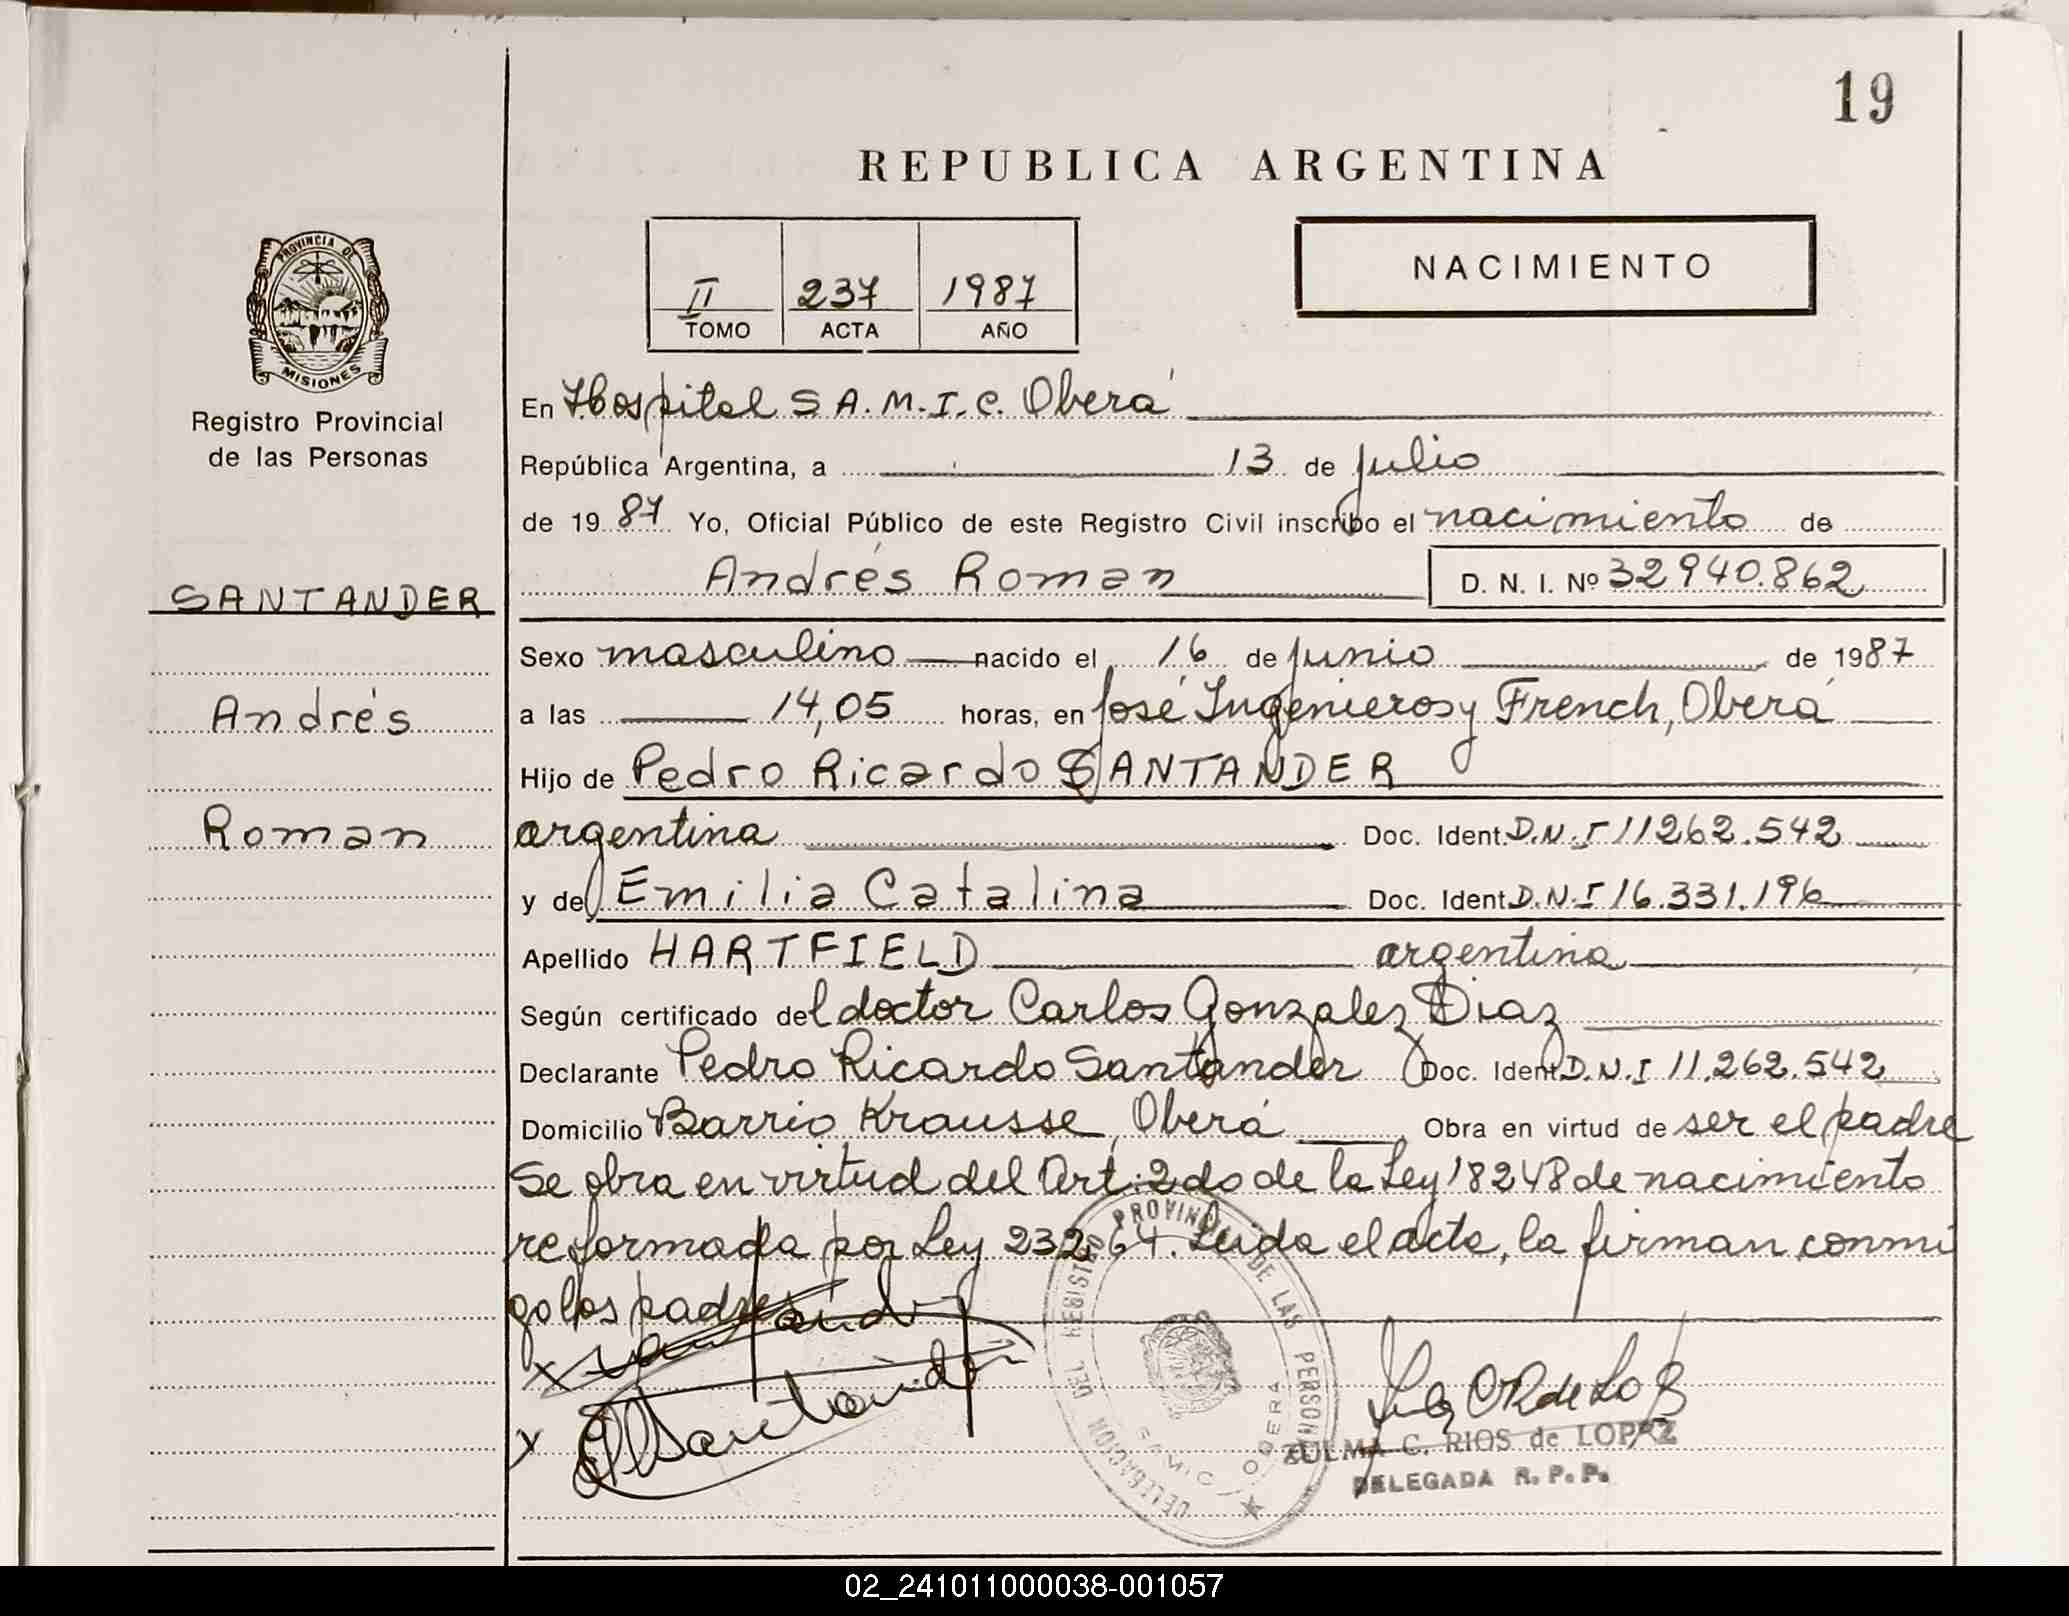 19
REPUBLICA ARGENTINA
II 237 1987
TOMO ACTA AÑO
NACIMIENTO
PROVINCIA DE
MISIONES
Registro Provincial
de las Personas
SANTANDER
Andrés
Roman
En Hospital S A.M.I.C. Oberá
República Argentina, a 13 de julio
de 1987 Yo, Oficial Público de este Registro Civil inscribo el nacimiento de
Andrés Roman D. N. I. Nº 32940.862
Sexo masculino nacido el 16 de junio de 1987
a las 14,05 horas, en José Ingenieros y French, Oberá
Hijo de Pedro Ricardo SANTANDER
argentina Doc. Ident. D.N.I 11262.542
y de Emilia Catalina Doc. Ident D.N.I 16.331.196
Apellido HARTFIELD argentina
Según certificado del doctor Carlos Gonzalez Diaz
Declarante Pedro Ricardo Santander Doc. Ident D.N.I 11.262.542
Domicilio Barrio Krausse, Oberá Obra en virtud de ser el padre
Se obra en virtud del Art. 2do de la Ley 18248 de nacimiento
reformada por Ley 23264. Leida el acta, la firman conmi
go los padres
x
x
DELEGACION DEL REGISTRO PROVINCIAL DE LAS PERSONAS
SAMIC / OBERA
ZULMA C. RIOS de LOPEZ
DELEGADA R. P. P.
02_241011000038-001057